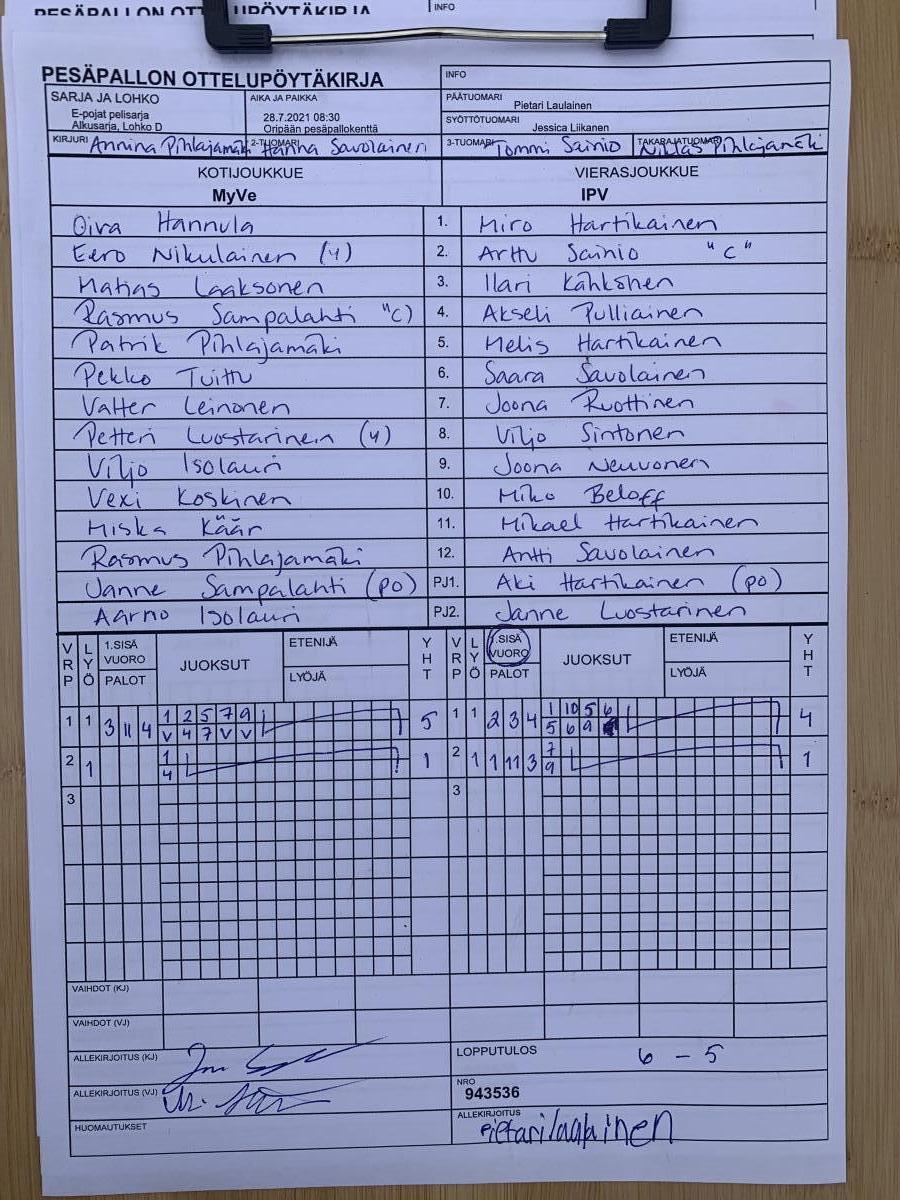 PESÄPALLON OTTELUPÖYTÄKIRJA
INFO
PESÄPALLON OTTELUPÖYTÄKIRJA
INFO
SARJA JA LOHKO
E-pojat pelisarja
Alkusarja, Lohko D
AIKA JA PAIKKA
28.7.2021 08:30
Oripään pesäpallokenttä
PÄÄTUOMARI
Pietari Laulainen
SYÖTTÖTUOMARI
Jessica Liikanen
KIRJURI Annina Pihlajamäki
2-TUOMARI Hanna Savolainen
3-TUOMARI Tommi Sainio
TAKARAJATUOMARI Niklas Pihlajamäki
KOTIJOUKKUE
MyVe
VIERASJOUKKUE
IPV
Oiva Hannula 1. Miro Hartikainen
Eero Nikulainen (4) 2. Arttu Sainio "C"
Matias Laaksonen 3. Ilari Kähkönen
Rasmus Sampalahti "C) 4. Akseli Pulliainen
Patrik Pihlajamäki 5. Melis Hartikainen
Pekko Tuittu 6. Saara Savolainen
Valtter Leinonen 7. Joona Ruottinen
Petteri Luostarinein (4) 8. Viljo Sintonen
Viljo Isolauri 9. Joona Neuvonen
Vexi Koskinen 10. Miko Beloff
Miska Käär 11. Mikael Hartikainen
Rasmus Pihlajamäki 12. Antti Savolainen
Janne Sampalahti (po) PJ1. Aki Hartikainen (po)
Aarno Isolauri PJ2. Janne Luostarinen
VRP LYÖ 1.SISÄ VUORO PALOT JUOKSUT ETENIJÄ LYÖJÄ YHT
VRP LYÖ 1.SISÄ VUORO PALOT JUOKSUT ETENIJÄ LYÖJÄ YHT
1 1 3 11 4 1 2 5 7 9 5 1 1 2 3 4 1 10 5 6 4
V 4 7 V V 5 6 9
2 1 1 1 2 1 1 11 3 7 1
4 9
3 3
VAIHDOT (KJ)
VAIHDOT (VJ)
ALLEKIRJOITUS (KJ)
LOPPUTULOS 6 - 5
ALLEKIRJOITUS (VJ)
NRO
943536
HUOMAUTUKSET
ALLEKIRJOITUS